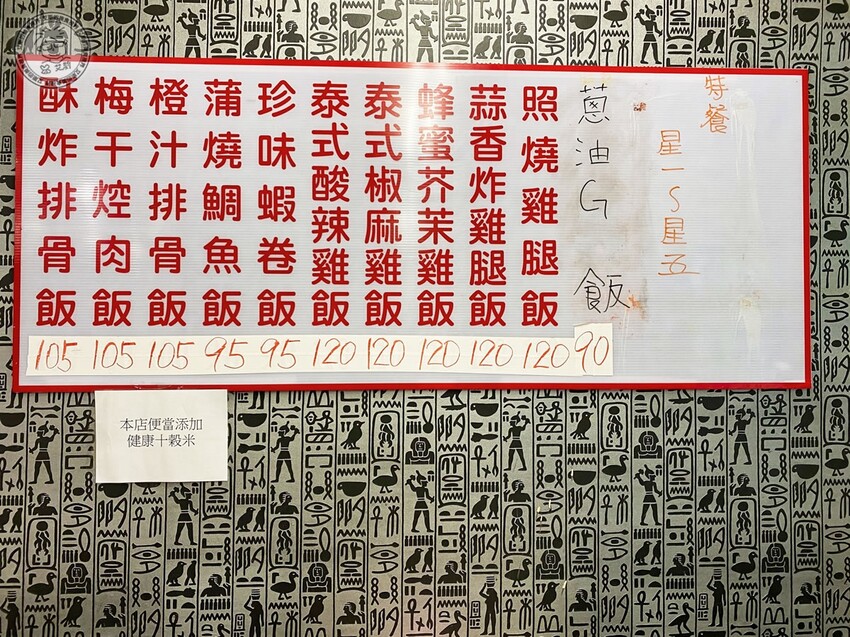 特餐
星一~星五
蔥油G 飯
90
照燒雞腿飯
120
蒜香炸雞腿飯
120
蜂蜜芥茉雞飯
120
泰式椒麻雞飯
120
泰式酸辣雞飯
120
珍味蝦卷飯
95
蒲燒鯛魚飯
95
橙汁排骨飯
105
梅干焢肉飯
105
酥炸排骨飯
105
本店便當添加
健康十穀米